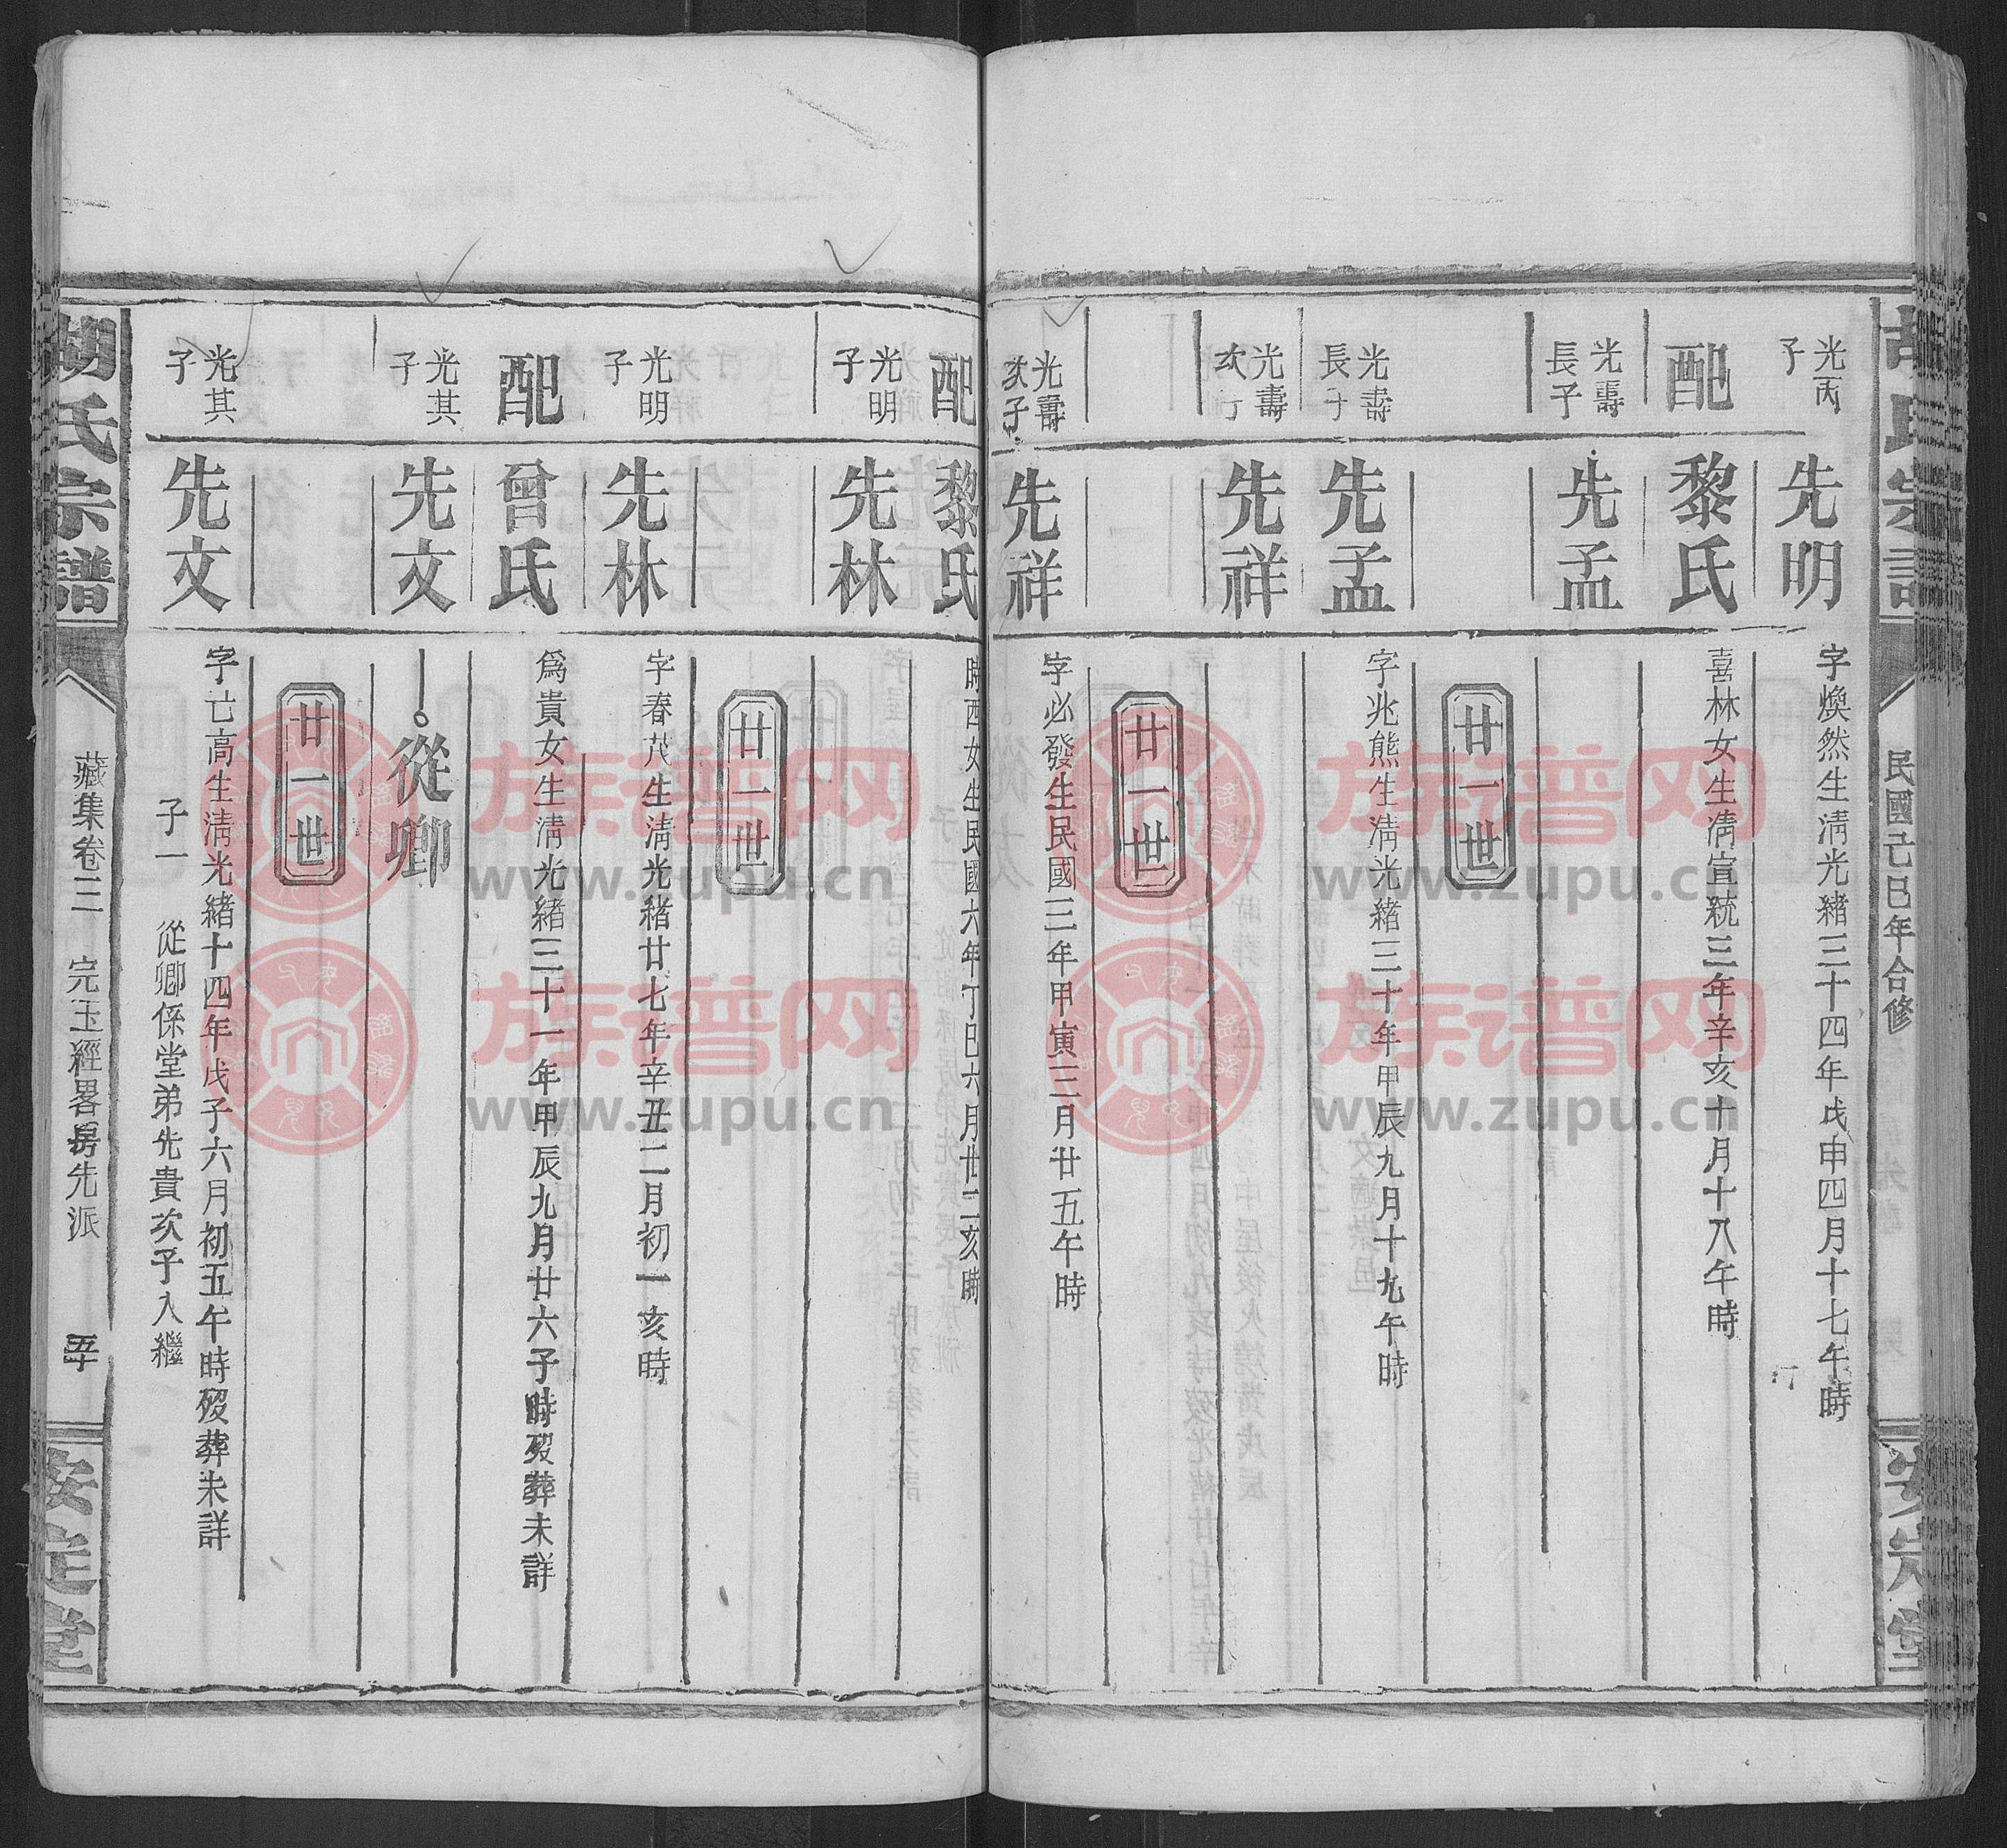 胡氏宗譜
民國己巳年合修
安定堂
光丙子
先明
字煥然生淸光緒三十四年戊申四月十七午時
配
黎氏
喜林女生淸宣統三年辛亥十月十八午時
光壽長子
先孟
廿一世
光壽長子
先孟
字兆熊生淸光緒三十年甲辰九月十九午時
光壽次子
先祥
廿一世
光壽次子
先祥
字必發生民國三年甲寅三月廿五午時
配
黎氏
時西女生民國六年丁巳六月廿二亥時
光明子
先林
廿一世
光明子
先林
字春茂生淸光緒廿七年辛丑二月初一亥時
配
曾氏
爲貴女生淸光緒三十一年甲辰九月廿六子時歿葬未詳
光其子
先文
從卿
廿一世
光其子
先文
字亡高生淸光緒十四年戊子六月初五午時歿葬未詳
子一 從卿係堂弟先貴次子入繼
胡氏宗譜
藏集卷三 完玉經畧房先派 五十
安定堂
族谱网
www.zupu.cn
族谱网
www.zupu.cn
族谱网
www.zupu.cn
族谱网
www.zupu.cn